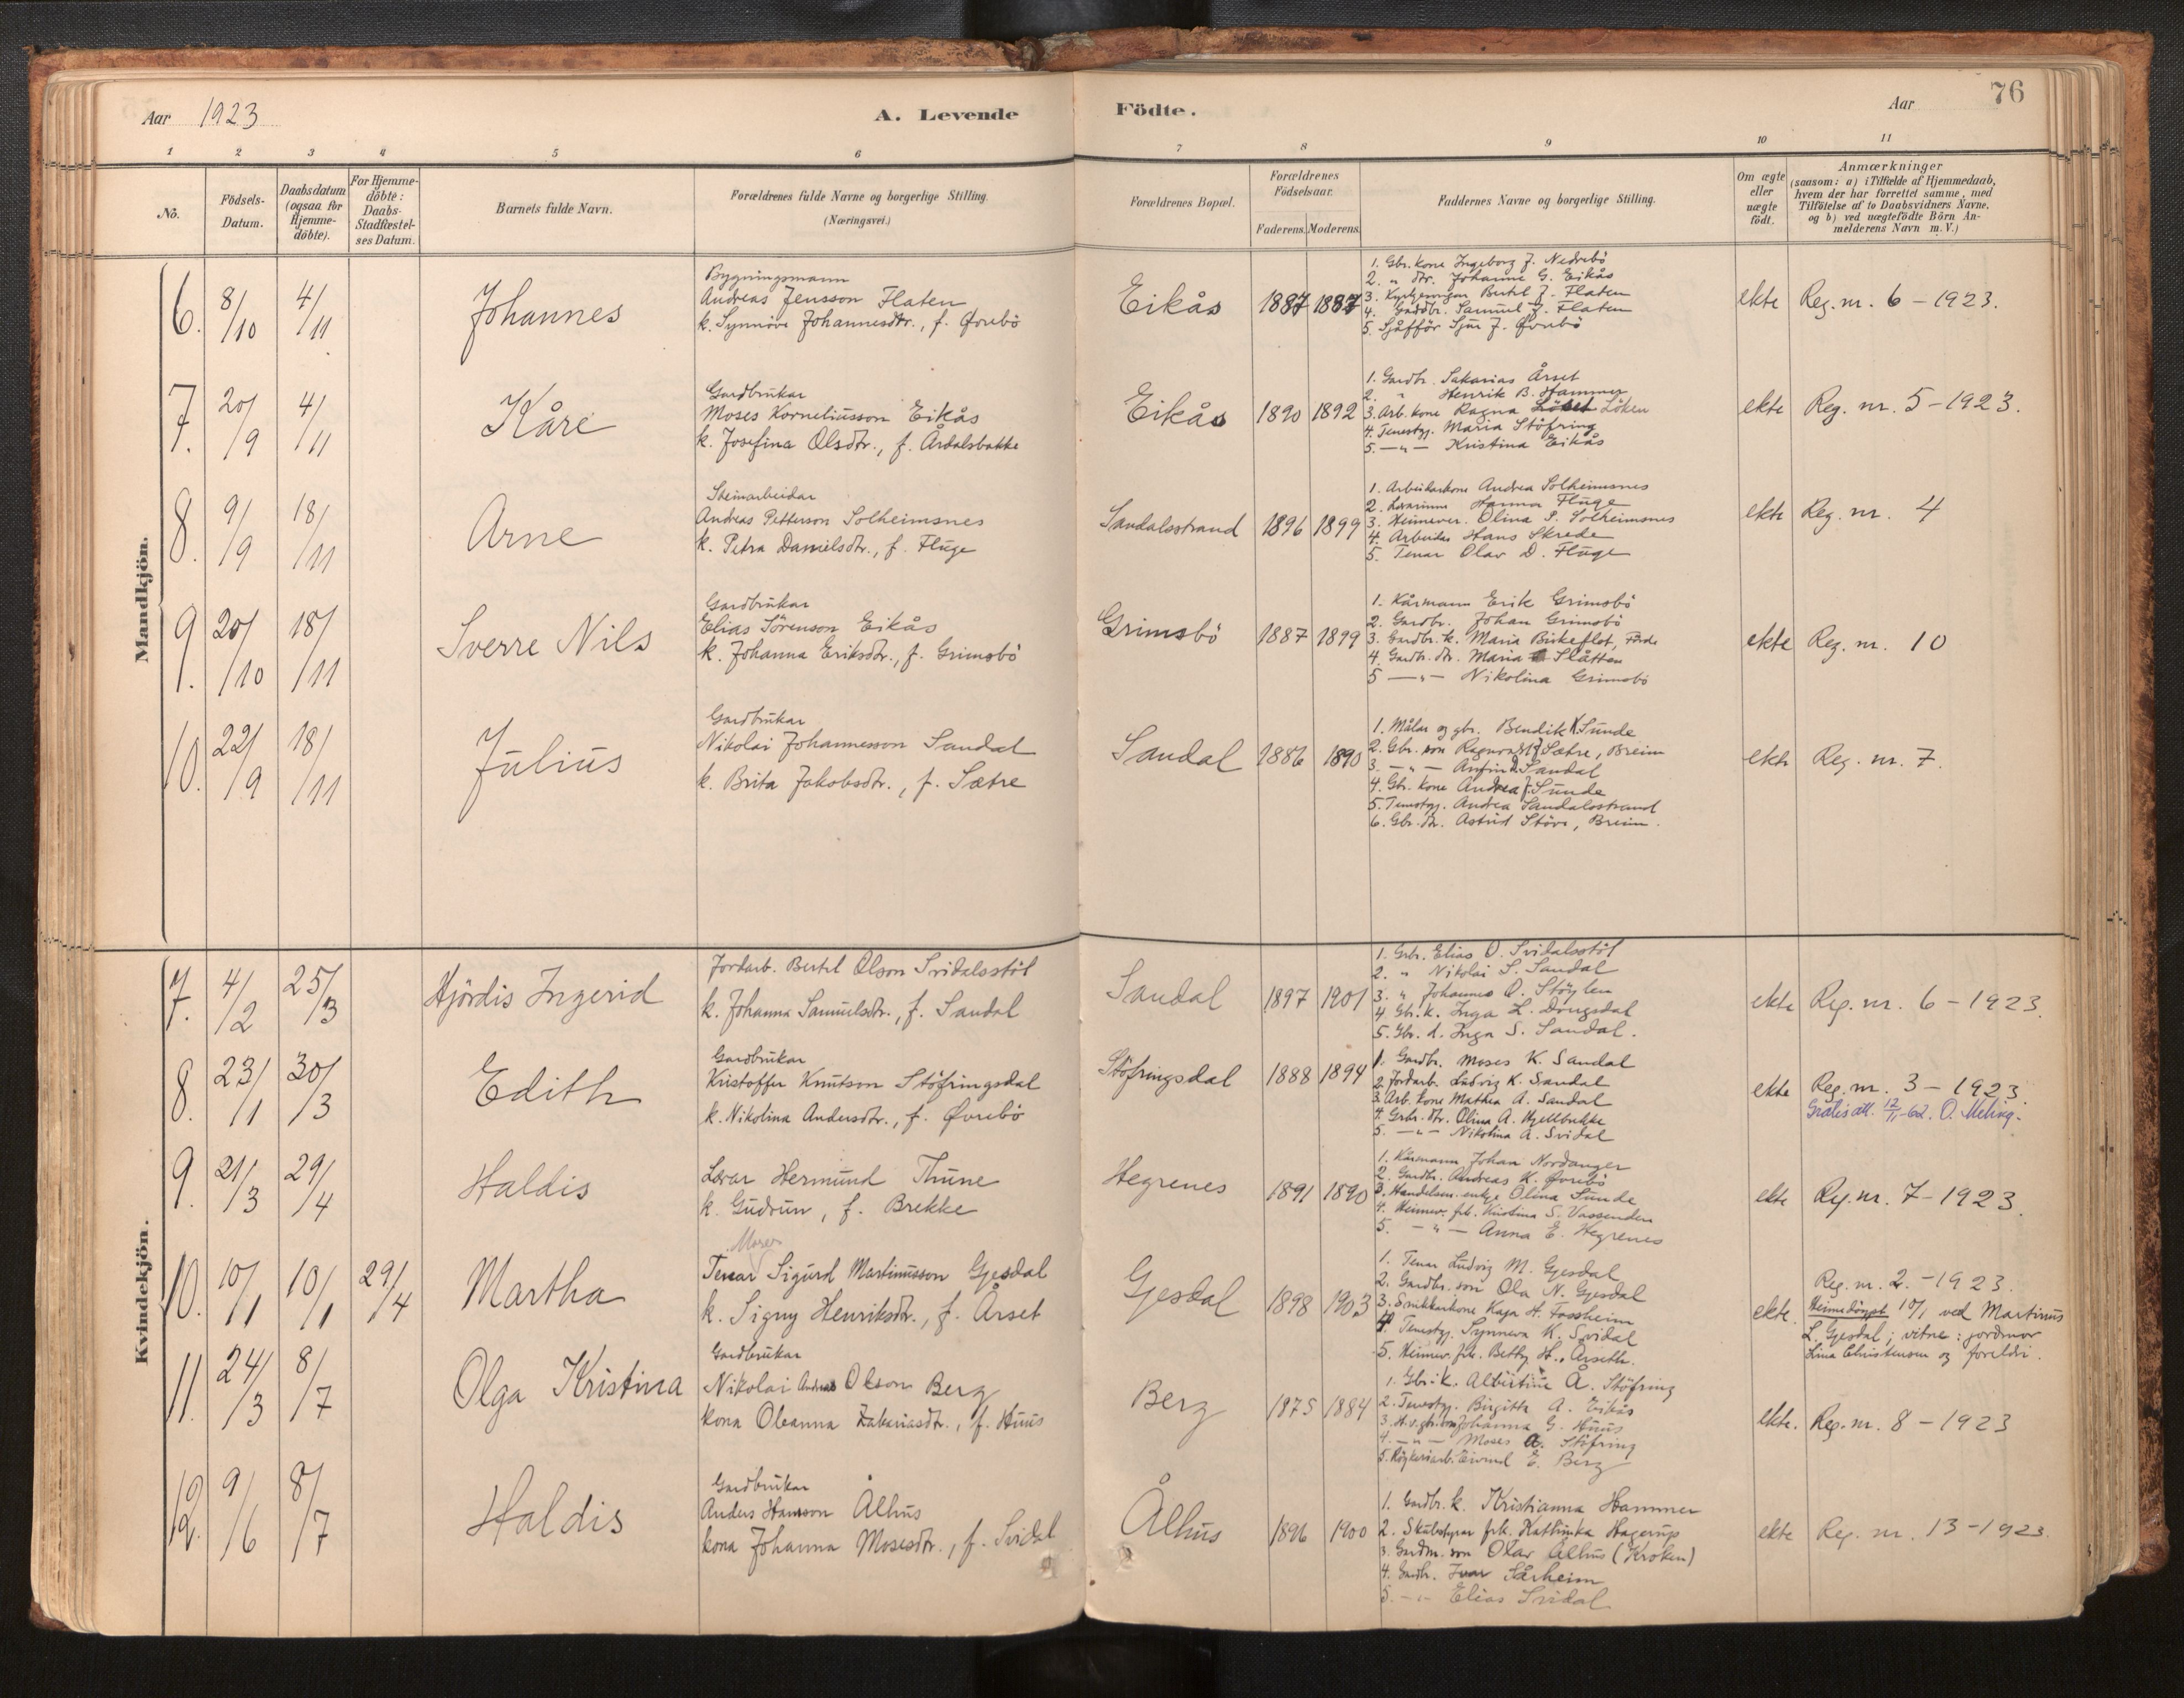 Aar 1923
A. Levende Födte.
Aar
76
1 2 3 4 5 6 7 8 9 10 11
No.
Födsels-Datum.
Daabsdatum (ogsaa for Hjemme-döbte).
For Hjemme-döbte: Daabs-Stadfæstel-ses Datum.
Barnets fulde Navn.
Forældrenes fulde Navne og borgerlige Stilling.
(Næringsvei.)
Forældrenes Bopæl.
Forældrenes Födselsaar.
Faderens. Moderens.
Faddernes Navne og borgerlige Stilling.
Om ægte eller uægte födt.
Anmærkninger
(saasom: a) i Tilfælde af Hjemmedaab,
hvem der har forrettet samme, med
Tilföielse af to Daabsvidners Navne,
og b) ved uægtefödte Börn An-
melderens Navn m. V.)
Mandkjön.
6. 8/10 4/11 Johannes
Bygningsmann
Andreas Jensson Flaten
k. Synnöve Johannesdtr., f. Øvrebö
Eikås 1887 1887
1. Gbr. kone Ingeborg J. Nedrebö
2. " dtr. Johanne G. Eikås
3. Bertel J. Flaten
4. Gardbr. Samuel J. Flaten
5. Sjåfför Sjur J. Øvrebö
ekte Reg. nr. 6 - 1923.
7. 20/9 4/11 Kåre
Gardbrukar
Moses Korneliusson Eikås
k. Josefina Olsdtr., f. Årdalsbakke
Eikås 1890 1892
1. Gardbr. Sakarias Årset
2. " Henrik B. Hammer
3. Arb. kone Ragna Löken
4. Tenestgj. Maria Stöfring
5. —"— Kristina Eikås
ekte Reg. nr. 5 - 1923.
8. 9/9 18/11 Arne
Steinarbeidar
Andreas Petterson Solheimsnes
k. Petra Danielsdtr., f. Fluge
Sandalsstrand 1896 1899
1. Arbeidarkone Andrea Solheimsnes
2. Lærarinne Hanna Fluge
3. Heimever. Olina P. Solheimsnes
4. Arbeidar Hans Skrede
5. Tenar Olav D. Fluge
ekte Reg. nr. 4
9. 20/10 18/11 Sverre Nils
Gardbrukar
Elias Sörenson Eikås
k. Johanna Eriksdtr., f. Grimsbö
Grimsbö 1887 1899
1. Kårmann Erik Grimsbö
2. Gardbr. Johan Grimsbö
3. Gardbr. k. Maria Birkeflot, Förde
4. Gardb. dtr. Maria Slåtten
5 —"— Nikolina Grimsbö
ekte Reg. nr. 10
10. 22/9 18/11 Julius
Gardbrukar
Nikolai Johannesson Sandal
k. Brita Jakobsdtr., f. Sætre
Sandal 1886 1890
1. Målar og gbr. Bendik K. Sunde
2. Gbr. son Ragnvald J. Sætre, Breim
3. —"— Anfin D. Sandal
4. Gbr. kone Andrea J. Sunde
5. Tenestgj. Andrea Sandalsstrand
6. Gbr. dtr. Astrid Störe, Breim.
ekte Reg. nr. 7.
Kvindekjön.
7. 4/2 25/3 Hjördis Ingerid
Jordarb. Bertel Olson Svidalsstöl
k. Johanna Samuelsdtr., f. Sandal
Sandal 1897 1901
1. Grbr. Elias O. Svidalsstöl
2. " Nikolai S. Sandal
3. " Johannes O. Stöylen
4. Gbr. k. Inga L. Dvergsdal
5. Gbr. d. Inga S. Sandal.
ekte Reg. nr. 6 - 1923.
8. 23/1 30/3 Edith
Gardbrukar
Kristoffer Knutson Stöfringsdal
k. Nikolina Andersdtr., f. Øvrebö
Stöfringsdal 1888 1894
1. Gardbr. Moses K. Sandal
2. Jordarb. Ludvig K. Sandal
3. Arb. kone Mathea A. Sandal
4. Grbr. dtr. Olina A. Hjellbakke
5. —"— Nikolina A. Svidal
ekte Reg. nr. 3 - 1923.
Gratis att. 12/11-62. O. Meling.
9. 21/3 29/4 Haldis
Lærar Hermund Thune
k. Gudrun, f. Brekke
Hegrenes 1891 1890
1. Kårmann Johan Nordanger
2. Gardbr. Andreas K. Øvrebö
3. Handelsm. enkje Olina Sunde
4. Heimev. frk. Kristina S. Vassenden
5. —"— Anna E. Hegrenes
ekte Reg. nr. 7 - 1923.
10. 10/1 10/1 29/4 Martha
Tenar Sigurd Martinusson Gjesdal
k. Signy Henriksdtr., f. Årset
Gjesdal 1898 1903
1. Tenar Ludvig M. Gjesdal
2. Gardbr. son Ola N. Gjesdal
3. Snikkarkone Kaja H. Fossheim
4. Tenestgj. Synneva K. Svidal
5. Heimev. frk. Betty H. Årseth.
ekte. Reg. nr. 2. - 1923.
Heimedöypt 10/1 ved Martinus
L. Gjesdal; vitne: jordmor
Lina Christensen og foreldri.
11. 24/3 8/7 Olga Kristina
Gardbrukar
Nikolai Andreas Olson Berg
kona Oleanna Zakariasdtr., f. Huus
Berg 1875 1884
1. Gbr. k. Albertine A. Stöfring
2. Tenestgj. Birgitte A. Eikås
3. Johanna G. Huus
4. —"— Moses A. Stöfring
5. Eivind E. Berg
ekte. Reg. nr. 8 - 1923
12. 9/6 8/7 Haldis
Gardbrukar
Anders Hansson Ålhus
kona Johanna Mosesdtr., f. Svidal
Ålhus 1896 1900
1. Gardbr. k. Kristianna Hammer
2. Skulestyrar frk. Kathinka Hagerup
3. Gardm. son Olav Ålhus (Kroken)
4. Gardbr. Ivar Sårheim
5. —"— Elias Svidal
ekte Reg. nr. 13 - 1923.